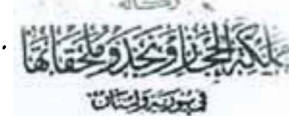 وكالة
مملكة الحجاز ونجد وملحقاتها
في سورية ولبنان